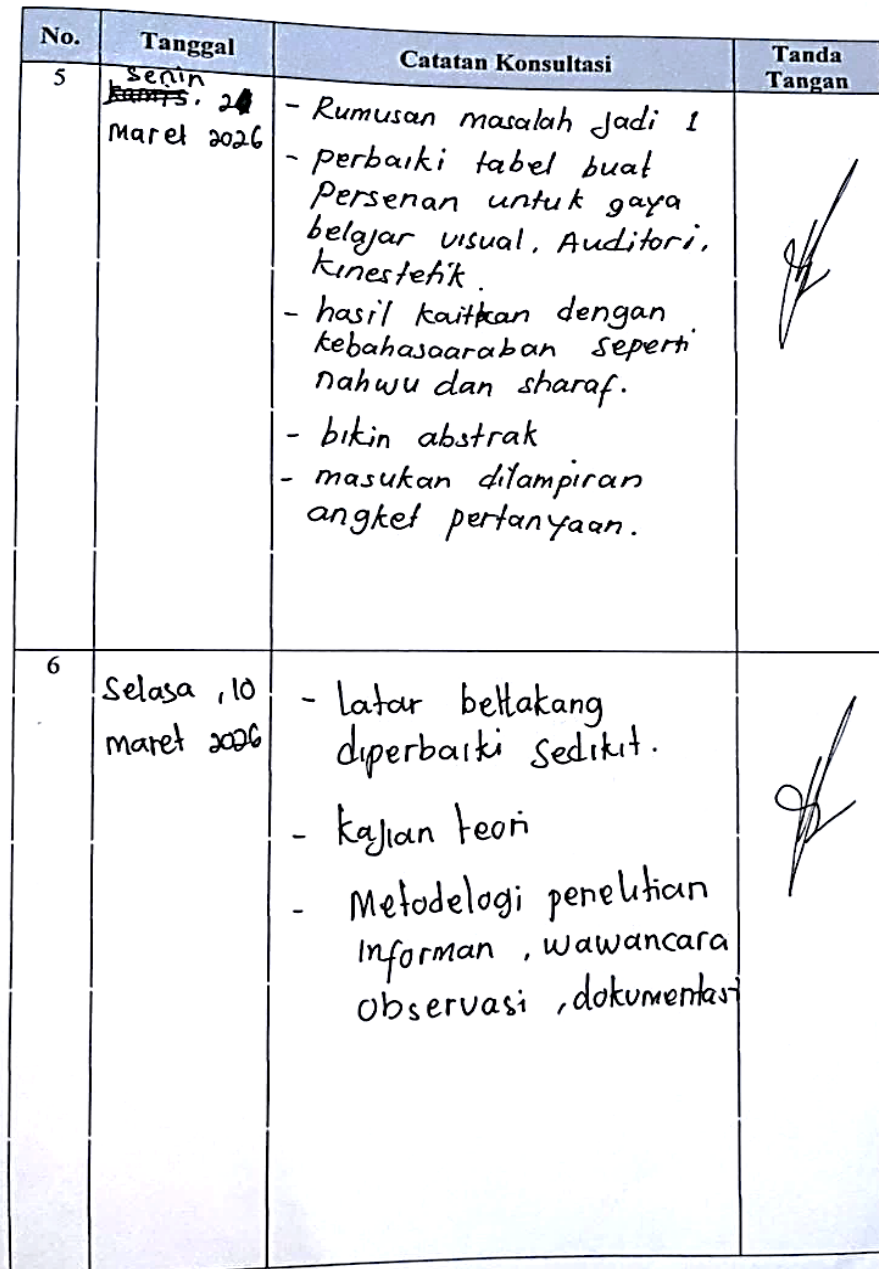 No. Tanggal Catatan Konsultasi Tanda Tangan
5
Senin
Kamis,
Maret 2026
- Rumusan masalah jadi 1
- perbaiki tabel buat
Persenan untuk gaya
belajar visual, Auditori,
kinestetik.
- hasil kaitkan dengan
kebahasaaraban seperti
nahwu dan sharaf.
- bikin abstrak
- masukan dilampiran
angket pertanyaan.
6
Selasa, 10
maret 2026
- latar bellakang
diperbaiki sedikit.
- kajian teori
- Metodelogi penelitian
Informan, wawancara
observasi, dokumentasi